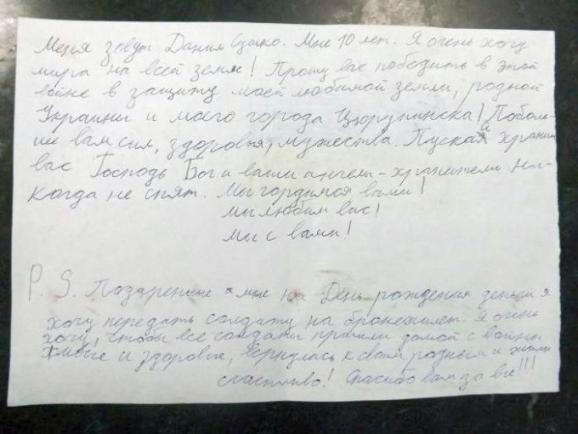 Меня зовут Данил Сушко. Мне 10 лет. Я очень хочу
мира на всей земле! Прошу вас победить в этой
войне в защиту моей любимой земли, родной
Украины и моего города Цюрупинска! Поболь-
ше вам сил, здоровья, мужества. Пускай хранит
вас Господь Бог и ваши ангелы-хранители ни-
когда не спят. Мы гордимся вами!
мы любим вас!
Мы с вами!
P.S. Подаренные мне на День рождения деньги я
хочу передать солдату на бронежилет. Я очень
хочу, чтобы все солдаты пришли домой с войны
живые и здоровые, вернулись к своим родным и жили
счастливо! Спасибо вам за всё!!!